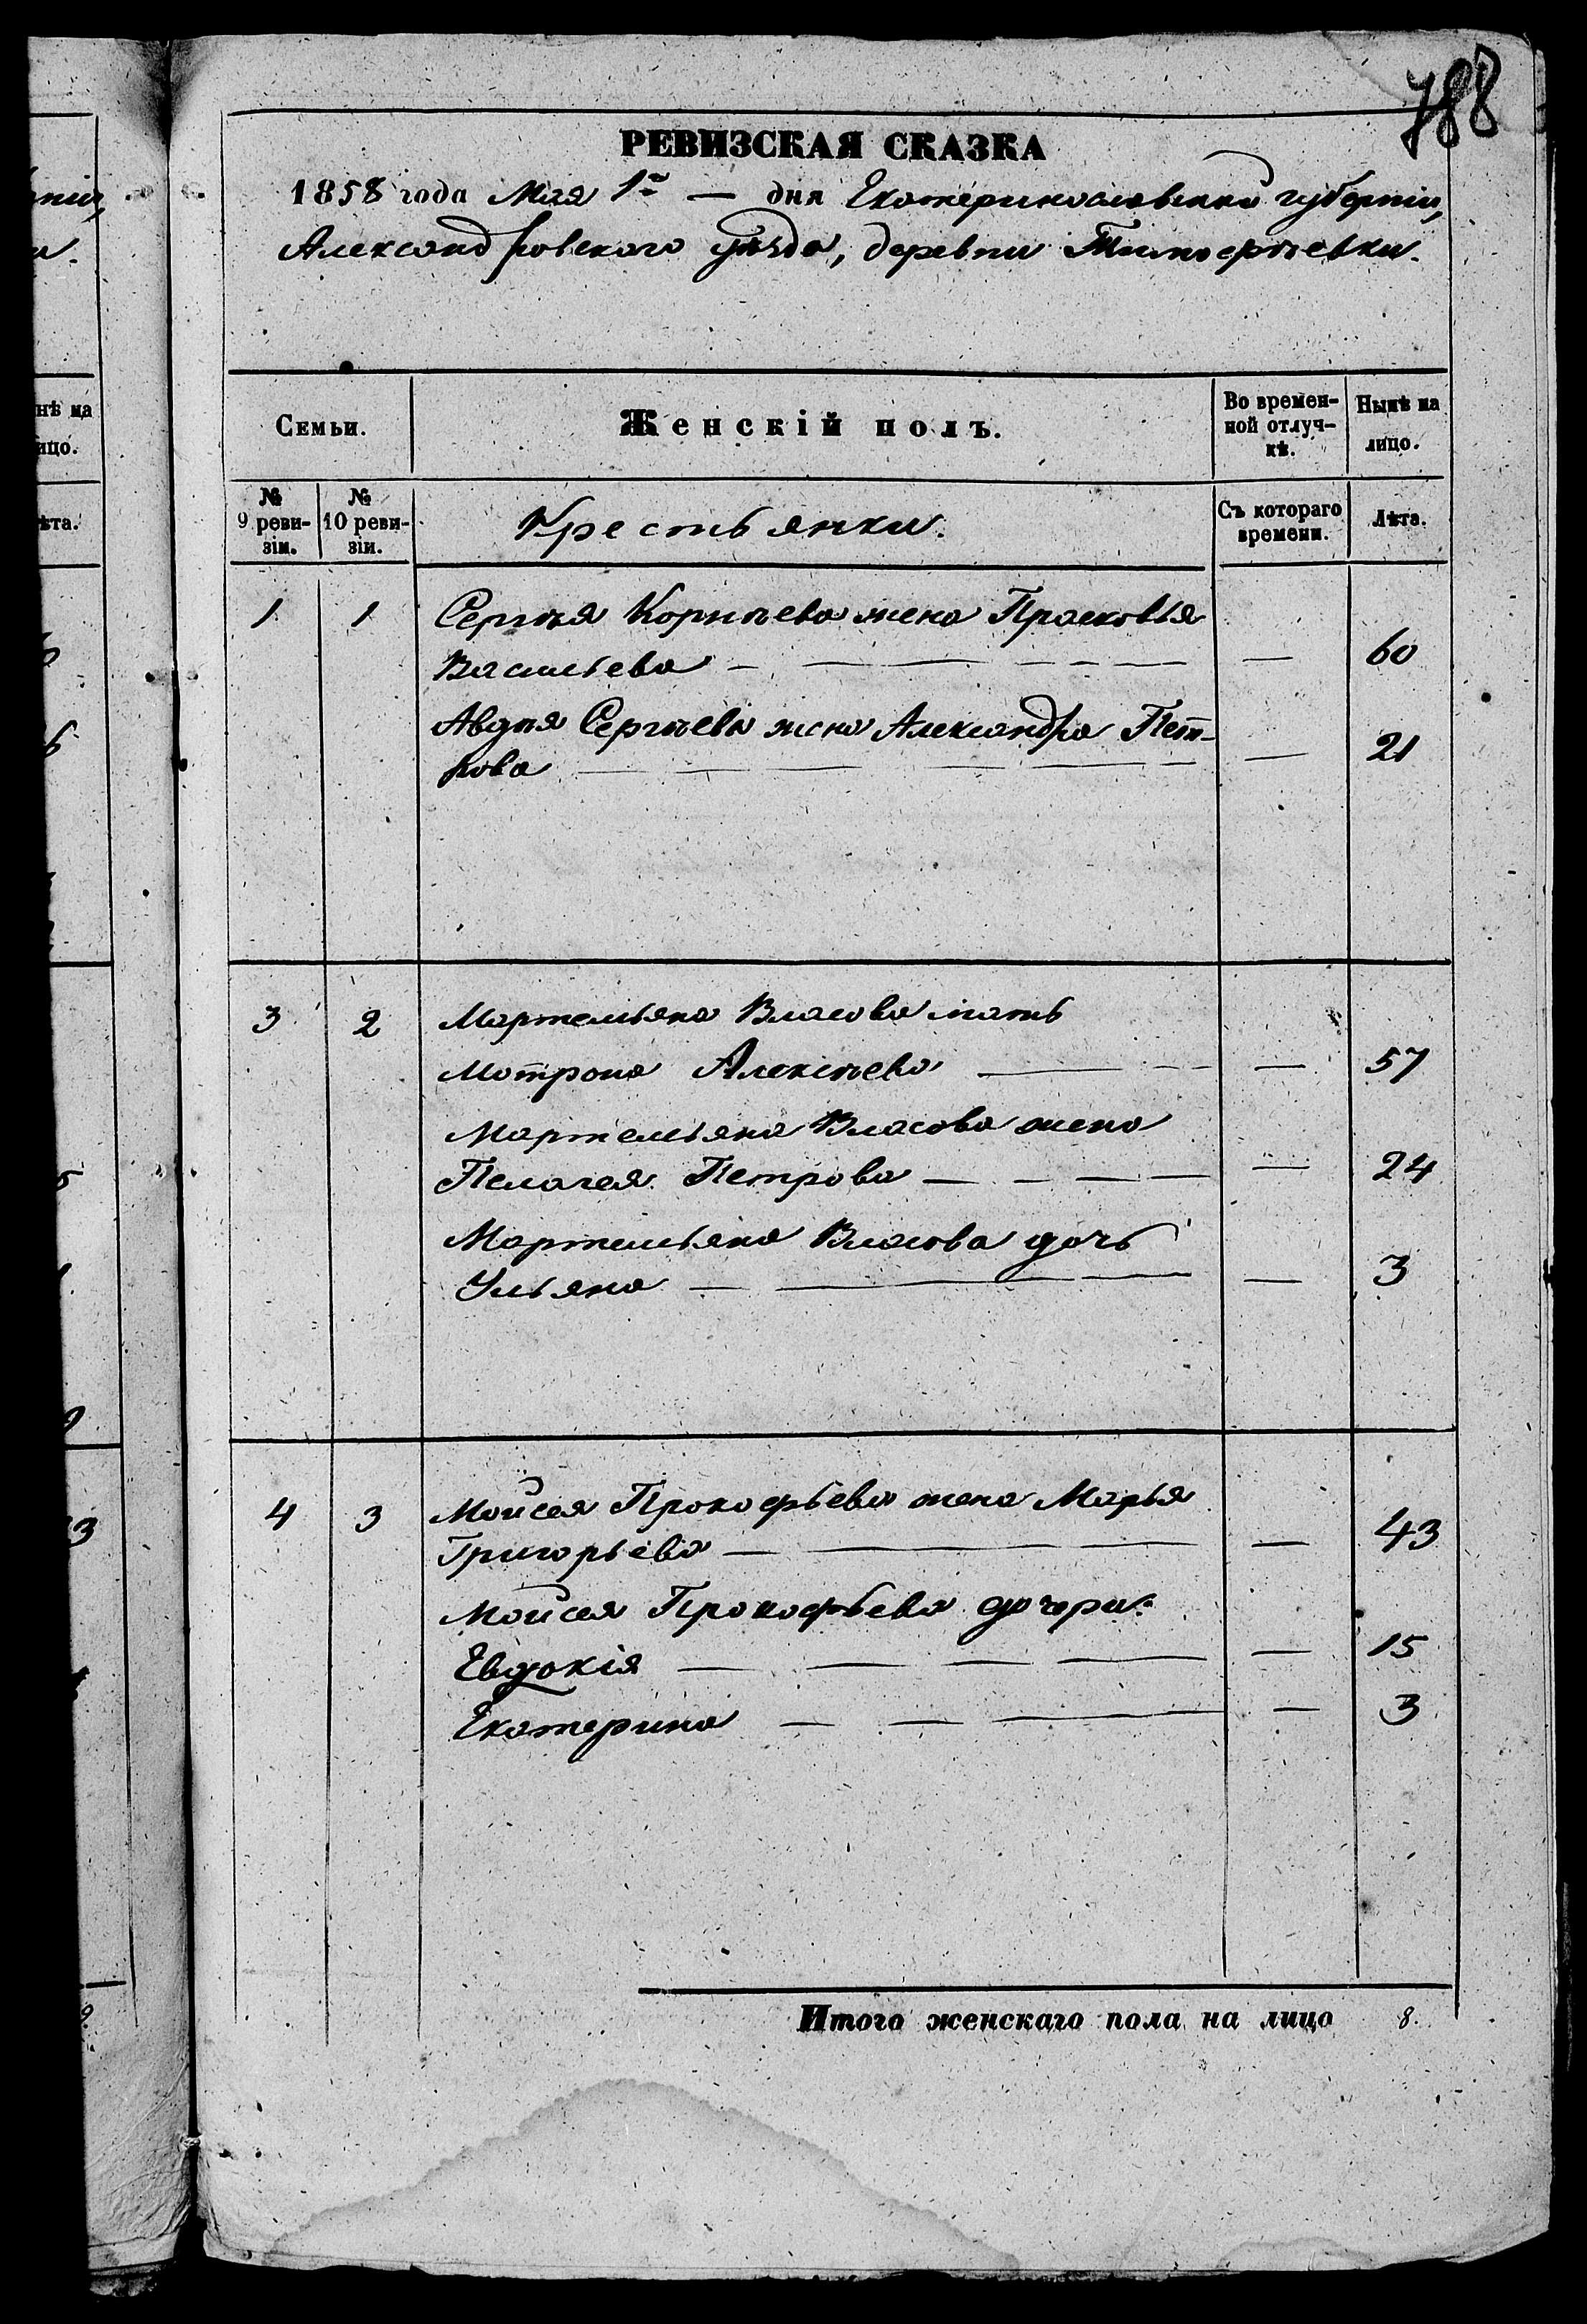 788
РЕВИЗСКАЯ СКАЗКА
1858 года Мая 1го — дня Екатеринославской губерніи,
Александровского уѣзда, деревни Тимоѳѣевки.
нѣ на
лицо.
Семьи.
Женскій полъ.
Во времен-
ной отлуч-
кѣ.
Нынѣ на
лицо.
№
9 реви-
зіи.
№
10 реви-
зіи.
Крестьянки.
Съ котораго
времени.
Лѣта.
1 1 Сергѣя Корнѣева жена Прасковья
Васильева — — 60
Авдѣя Сергѣева жена Александра Пет-
рова — — 21
3 2 Мартемьяна Власова мать
Мотрона Алексѣева — — 57
Мартемьяна Власова жена
Пелагея Петрова — — 24
Мартемьяна Власова дочь
Ульяна — — 3
4 3 Мойсея Прокофьева жена Марья
Григорьева — — 43
Мойсея Прокофьева дочери:
Евдокія — — 15
Екатерина — — 3
Итого женскаго пола на лицо 8.